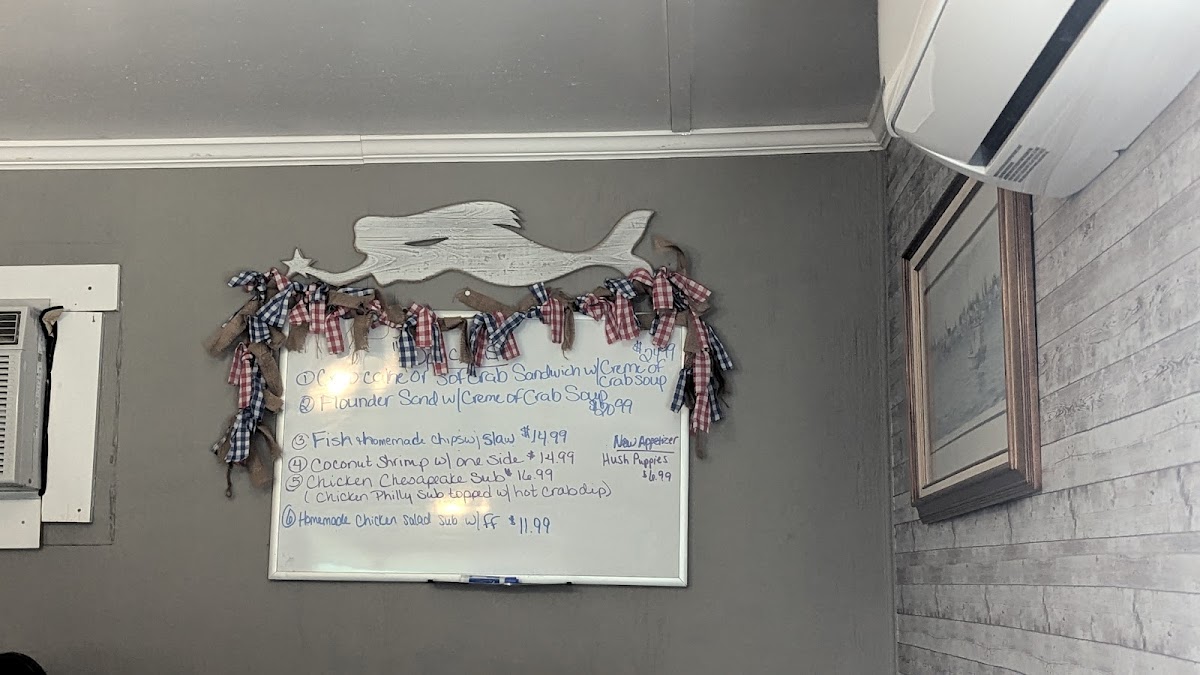 $24.99
① or Sof Crab Sandwich w/ Creme of Crab soup
② Flounder Sand w/ Creme of Crab Soup
$20.99
③ Fish & homemade chips w/ slaw $14.99
④ Coconut Shrimp w/ one side $14.99
⑤ Chicken Chesapeake Sub $16.99
(Chicken Philly Sub topped w/ hot crab dip)
⑥ Homemade Chicken Salad Sub w/ ff $11.99
New Appetizer
Hush Puppies
$6.99